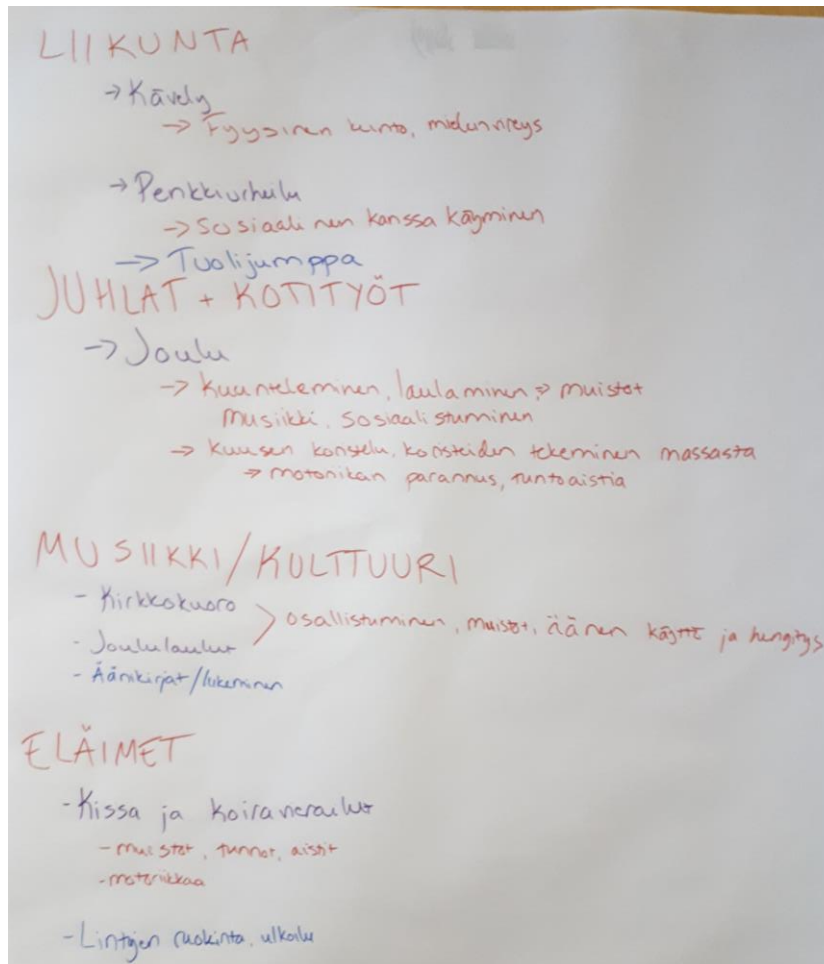 LIIKUNTA
→ Kävely
→ Fyysinen kunto, mielenvireys
→ Penkkiurheilu
→ Sosiaalinen kanssa käyminen
→ Tuolijumppa
JUHLAT + KOTITYÖT
→ Joulu
→ Kuunteleminen, laulaminen → muistot
musiikki, sosiaalistuminen
→ Kuusen koristelu, koristeiden tekeminen massasta
→ motoriikan parannus, tuntoaistia
MUSIIKKI/KULTTUURI
- Kirkkokuoro
> osallistuminen, muistot, äänen käyttö ja hengitys
- Joululaulut
- Äänikirjat/lukeminen
ELÄIMET
- Kissa ja koiravierailut
- muistot, tunnot, aistit
- motoriikkaa
- Lintujen ruokinta, ulkoilu